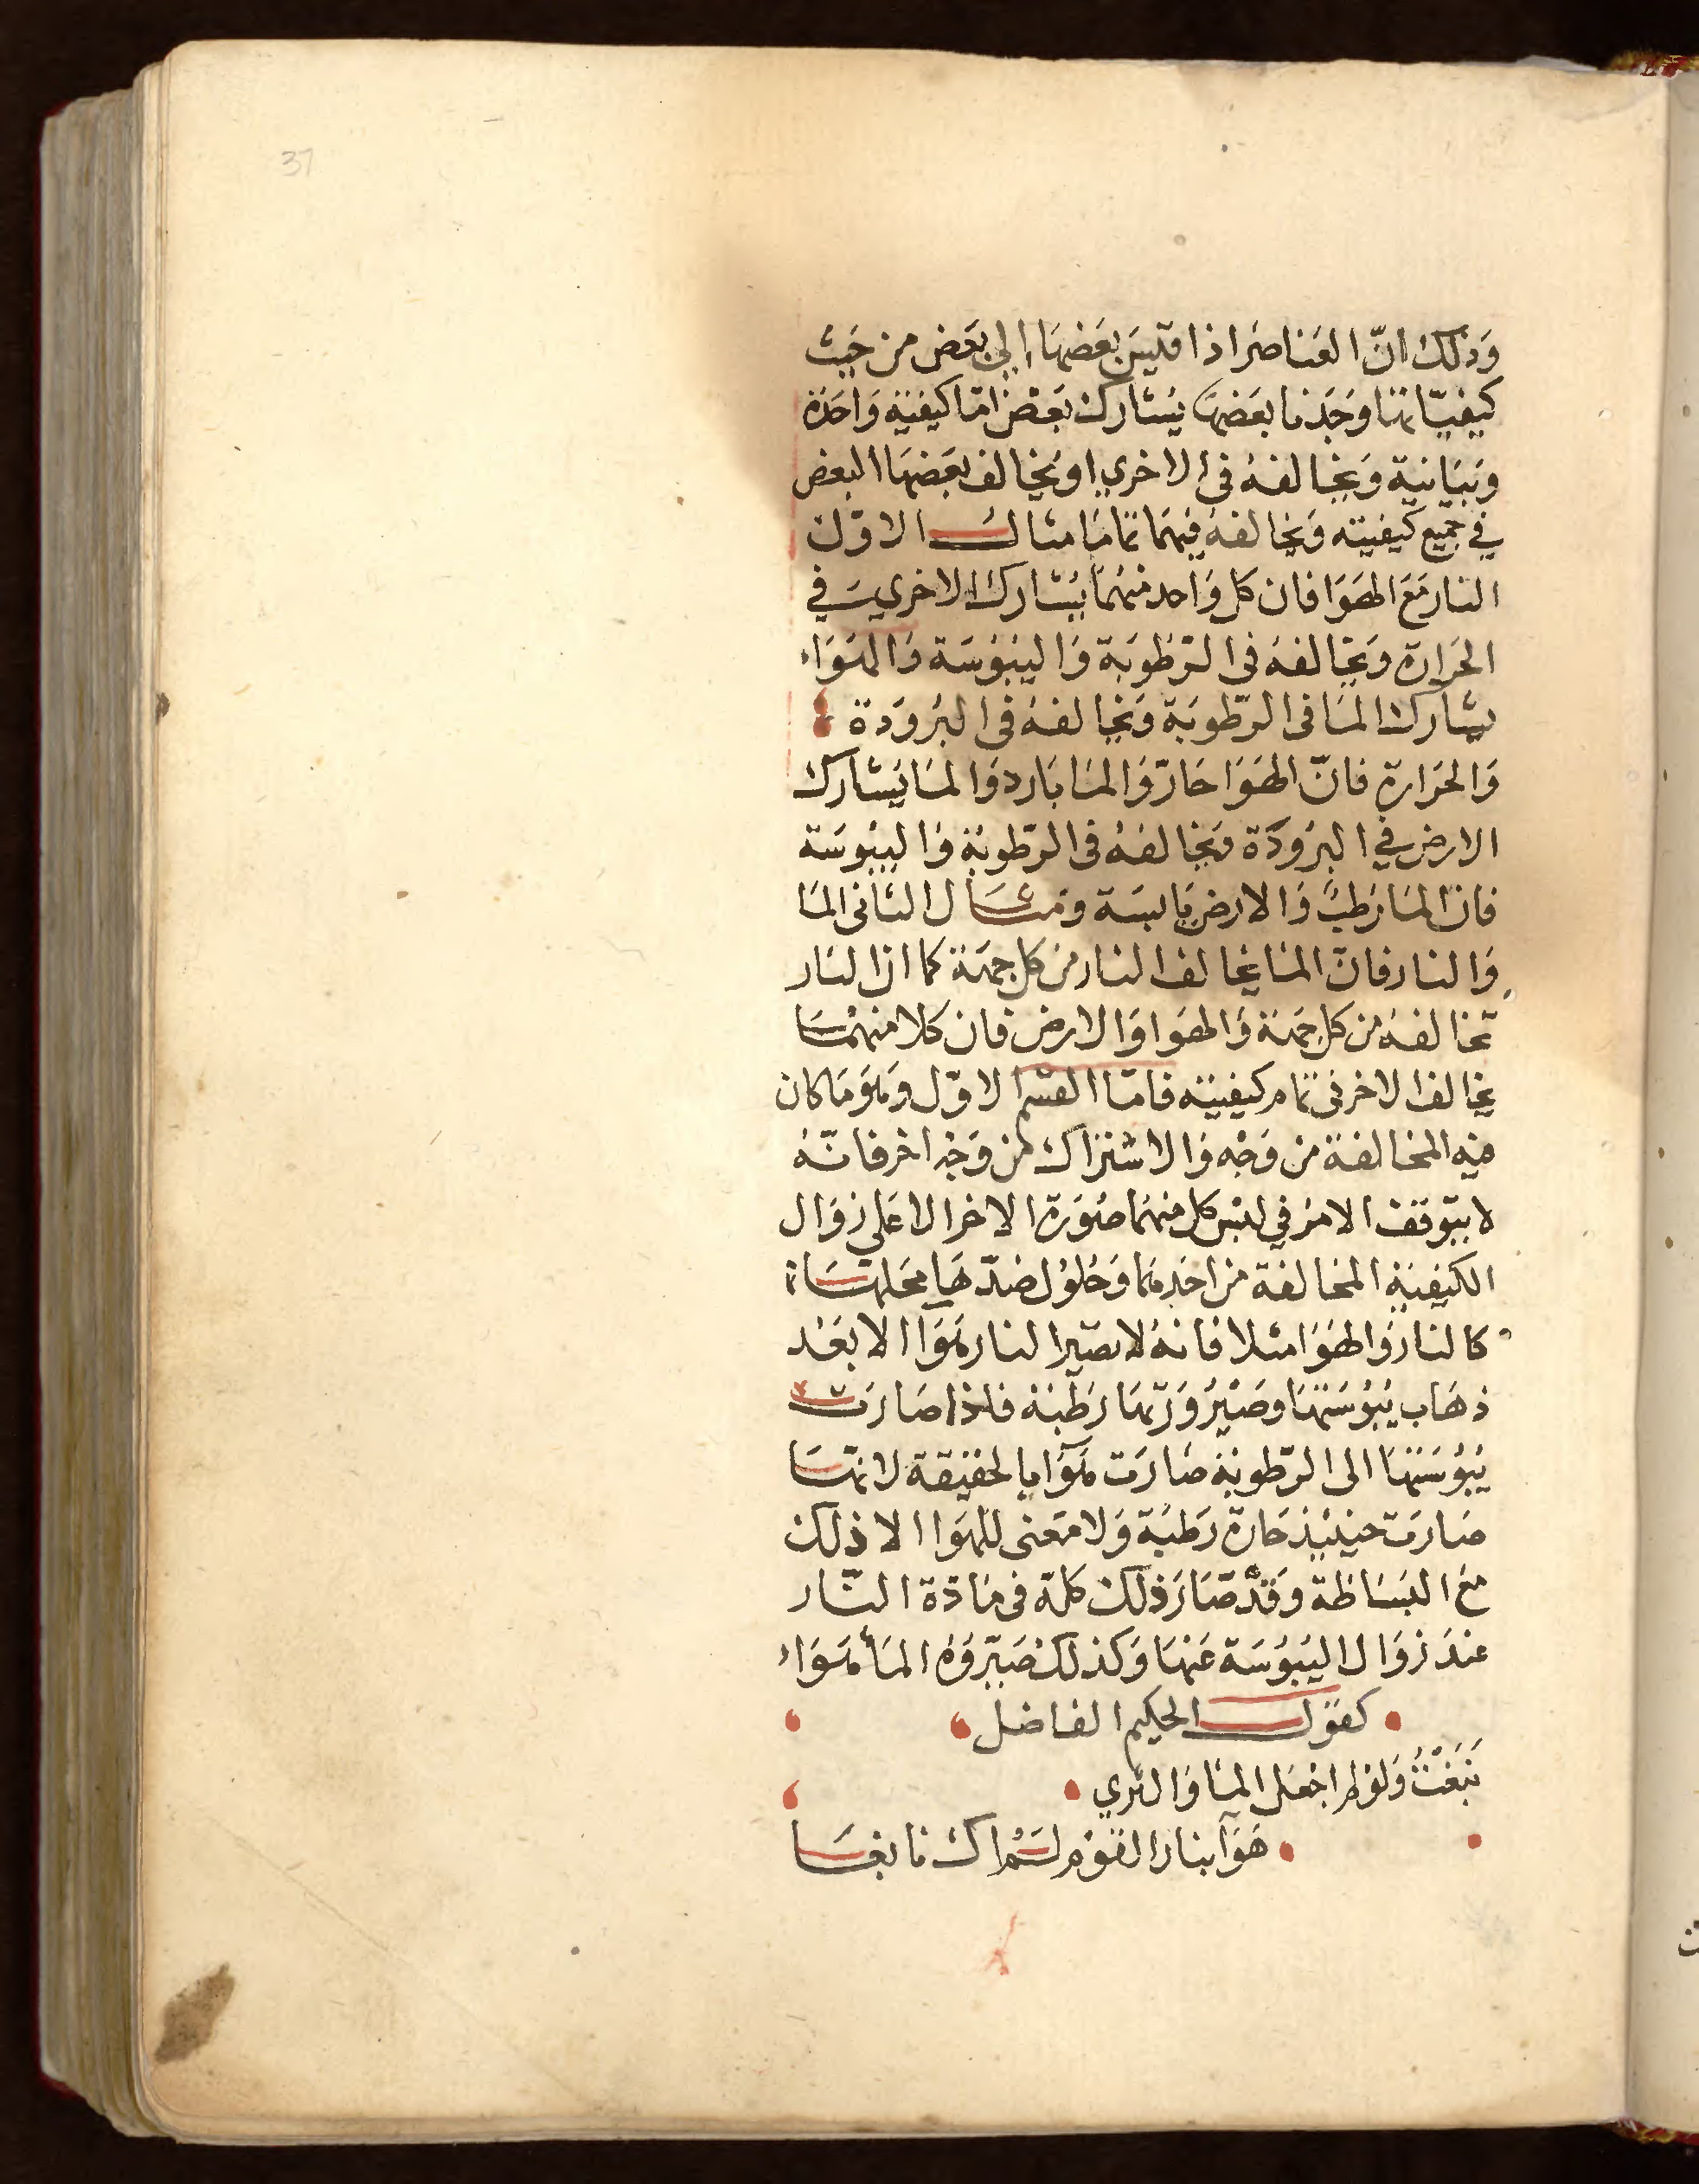 37
وَذلك انّ العَناصرَ اذا قيسَ بعَضهَا الي بعَض من حَيث
كيفيّاتها وجَدنا بعَضهَا يشارك بعَض امّا كيفية وَاحدَة
وَيخالفهُ في الاخري او يخالف بعَضهَا البعض
في جميع كيفيته وَيخالفهُ فيهمَا تمامَا مثال الاوّل
النار مَعَ الهوَا فان كل وَاحد منهمَا يشارك الاخري في
الحَرارة وَيخالفهُ في الرّطوبَة وَاليبُوسَة وَالهوَاء
يشارك المَا في الرّطوبَة وَيخالفهُ في البرُودَة
وَالحَرارة فانّ الهوَا حَارّ وَالمَا بَارد وَالمَا يَشارك
الارض في البرُودَة وَيخالفهُ في الرّطوبَة وَاليبُوسَة
فان المَا رَطبٌ وَالارض يَابسَة وَمثال الثاني المَا
وَالنار فانّ المَا يخالف النار من كل جهَة كما ان النار
تخالفهُ من كل جهَة وَالهوَا وَالارض فان كلا منهمَا
يخالف الاخر في تمام كيفيته فامّا القسم الاوّل وَهوَ مَا كان
فيه المخالفة من وَجْه وَالاشتراك من وَجْه اخر فانّهُ
لا يتوَقف الامرُ في لبْس كل منهمَا صُورَة الاخر الا عَلي زوَال
الكيفية المخالفة من احَدهمَا وَحُلوُل ضدّهَا محَلهَا
كالنار وَالهوَا مثلا فانهُ لا تصير النار هَوَا الا بعَد
ذهَاب يبُوسَتهَا وصَيْرُورَتهَا رَطبَة فاذا صَارَت
يبُوسَتهَا الي الرّطوبَة صَارَت هَوَآ بالحقيقة لانهَا
صَارَت حينئيذ حَارة رَطبَة وَلا مَعني للهوَا الا ذلك
مع البسَاطة وَقدْ صَارَ ذلك كلهُ في مَادّة النّار
عندَ زوَال اليبُوسَة عَنهَا وَكذلك صَيّرُوهُ المَأ هَوَاء
كقوَل الحكيم الفاضل
نبَغْتُ وَلوْ لم اجْعَل المَا وَالثري
هَوَآ بنار القوْم لسْم اك نابغَا